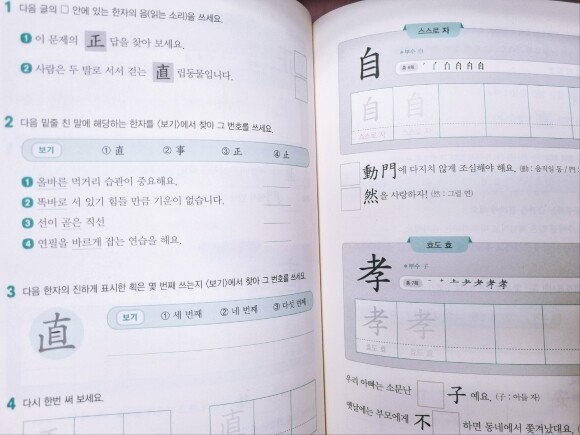 1 다음 글의 □ 안에 있는 한자의 음(읽는 소리)을 쓰세요.
❶ 이 문제의 正 답을 찾아 보세요.
❷ 사람은 두 발로 서서 걷는 直 립동물입니다.
2 다음 밑줄 친 말에 해당하는 한자를 <보기>에서 찾아 그 번호를 쓰세요.
보기 ① 直 ② 事 ③ 正 ④ 止
❶ 올바른 먹거리 습관이 중요해요.
❷ 똑바로 서 있기 힘들 만큼 기운이 없습니다.
❸ 선이 곧은 직선
❹ 연필을 바르게 잡는 연습을 해요.
3 다음 한자의 진하게 표시한 획은 몇 번째 쓰는지 <보기>에서 찾아 그 번호를 쓰세요.
直
보기 ① 세 번째 ② 네 번째 ③ 다섯 번째
4 다시 한번 써 보세요.
直
스스로 자
自
부수 自
총 6획
自 自
스스로 자
動 門에 다치지 않게 조심해야 해요. (動 : 움직일 동 / 門 :
然을 사랑하자! (然 : 그럴 연)
효도 효
孝
부수 子
총 7획
孝 孝
효도 효
우리 아빠는 소문난 子 예요. (子 : 아들 자)
옛날에는 부모에게 不 하면 동네에서 쫓겨났대요.